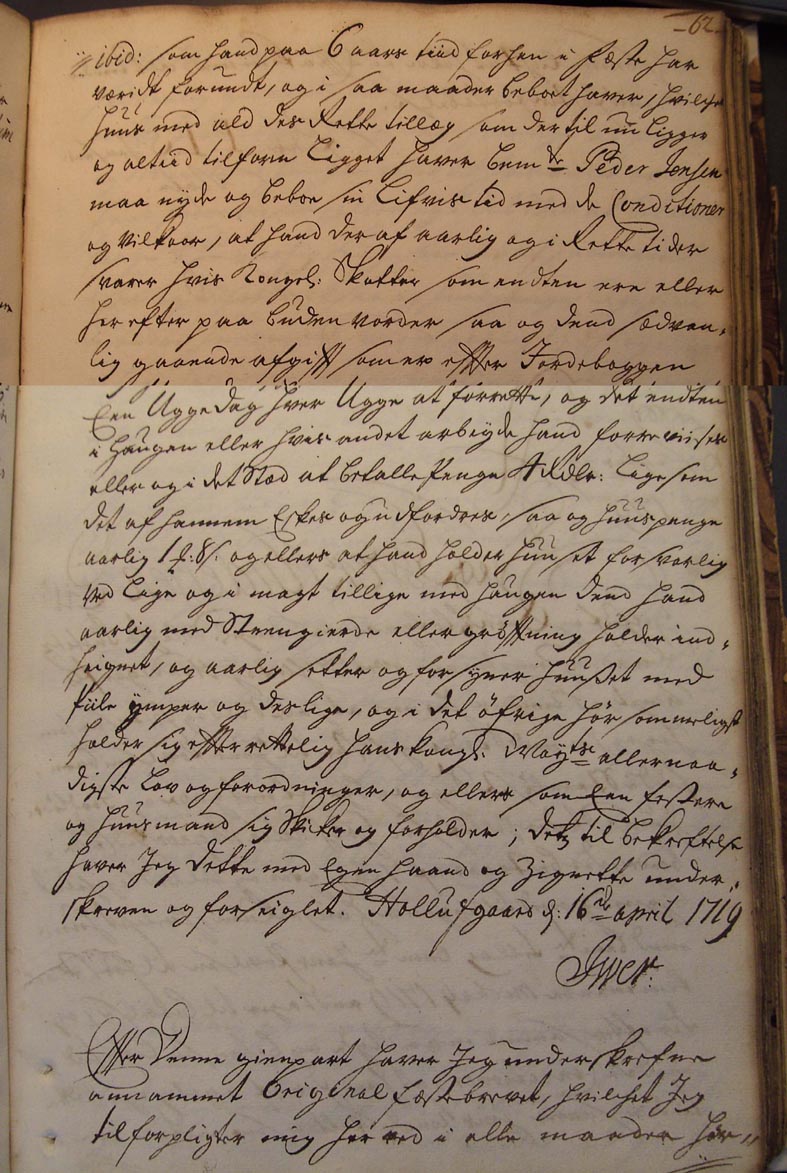 -62-
ibid: som hand paa 6 aars tiid forhen i fæste har
væridt forundt, og i saa maader beboet haver, hvilchet
Huus med ald des Rette tillæg som der til nu ligger
og altiid tilforn Ligget haver bem.te Peder Jensen
maa nyde og beboe sin Lifvis tid med de Conditioner
og vilkaar, at hand der af aarlig og i Rette tider
svarer hvis Kongel: Skatter som endten ere eller
her efter paa buden vorder saa og dend sædvan-
lig gaaende afgifft som er effter Jordebogen
Een Ugge dag hver Ugge at forrette, og det endten
i Haugen eller hvis andet arbeyde hand forreviises
eller og i det Sted at betalle Penge 4 Rdlr: Lige som
det af hannem Eskes og udfordres, saa og huus penge
aarlig 1 ... 8 s: og ellers at hand holder huuset forsvarlig
ved Lige og i magt tillige med haugen dend hand
aarlig med Steengierde eller grøftning holder ind-
heignet, og aarlig setter og forsyner huuset med
Piile ymper og deslige, og i det øfrige hør sommeligst
holder sig effterrettelig hans Kongl: May.ts allernaa-
digste Lov og forordninger, og ellers som Een fester
og huusmand sig skicker og forholder; detz til bekreftelse
haver Jeg dette med Egen haand og Zignette under-
skreven og forseiglet. Hollufgaard d: 16de april 1719
Jwer:
Effter denne gienpart haver Jeg underskrefne
annammet Original fæstebrevet, hvilchet Jeg
tilforpligter mig her ved i alle maader hør-